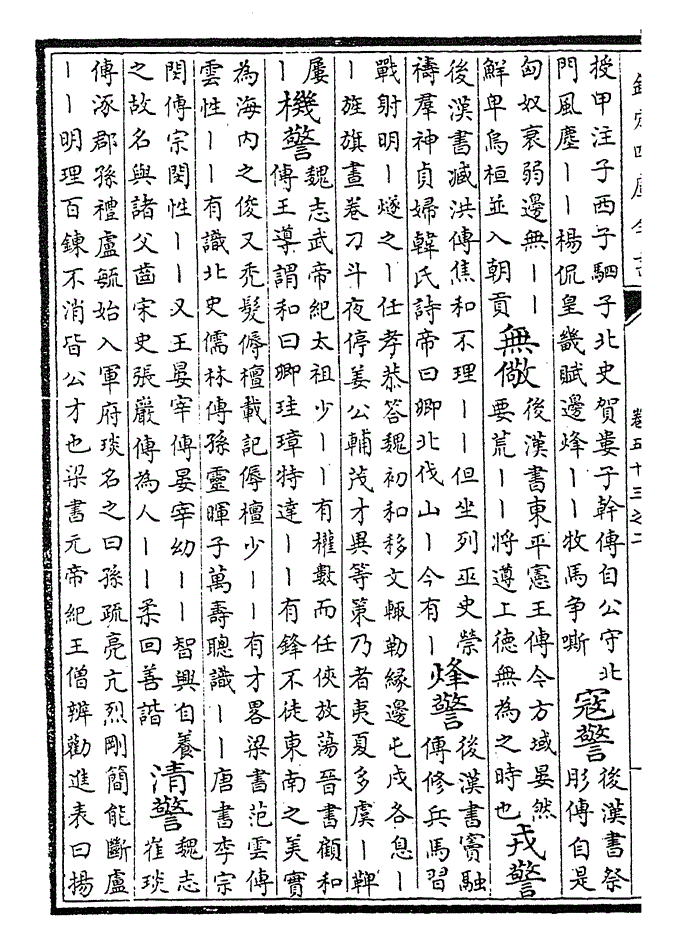 欽定四庫全書
卷五十三之二
授甲注子西子駟子北史賀婁子幹傳自公守北
門風塵——楊侃皇畿賦邊烽——牧馬争嘶
寇警
後漢書祭
肜傳自是
匈奴衰弱邊無——
鮮卑烏桓並入朝貢
無儆
後漢書東平憲王傳今方域晏然
要荒——將遵上德無為之時也
戎警
後漢書臧洪傳焦和不理——但坐列巫史禜
禱羣神貞婦韓氏詩帝曰卿北伐山—今有—
烽警
後漢書竇融
傳修兵馬習
戰射明—燧之—任孝恭答魏初和移文輙勒緣邊屯戍各息—
—旌旗晝卷刁斗夜停姜公輔茂才異等策乃者夷夏多虞—鞞
屢
—
機警
魏志武帝紀太祖少——有權數而任俠放蕩晉書顧和
傳王導謂和曰卿珪璋特達——有鋒不徒東南之美實
為海内之俊又禿髮傉檀載記傉檀少——有才畧梁書范雲傳
雲性——有識北史儒林傳孫靈暉子萬壽聰識——唐書李宗
閔傳宗閔性——又王晏宰傳晏宰幼——智興自養
之故名與諸父齒宋史張嚴傳為人——柔回善諧
清警
魏志
崔琰
傳涿郡孫禮盧毓始入軍府琰名之曰孫疏亮亢烈剛簡能斷盧
——明理百鍊不消皆公才也梁書元帝紀王僧辨勸進表曰揚